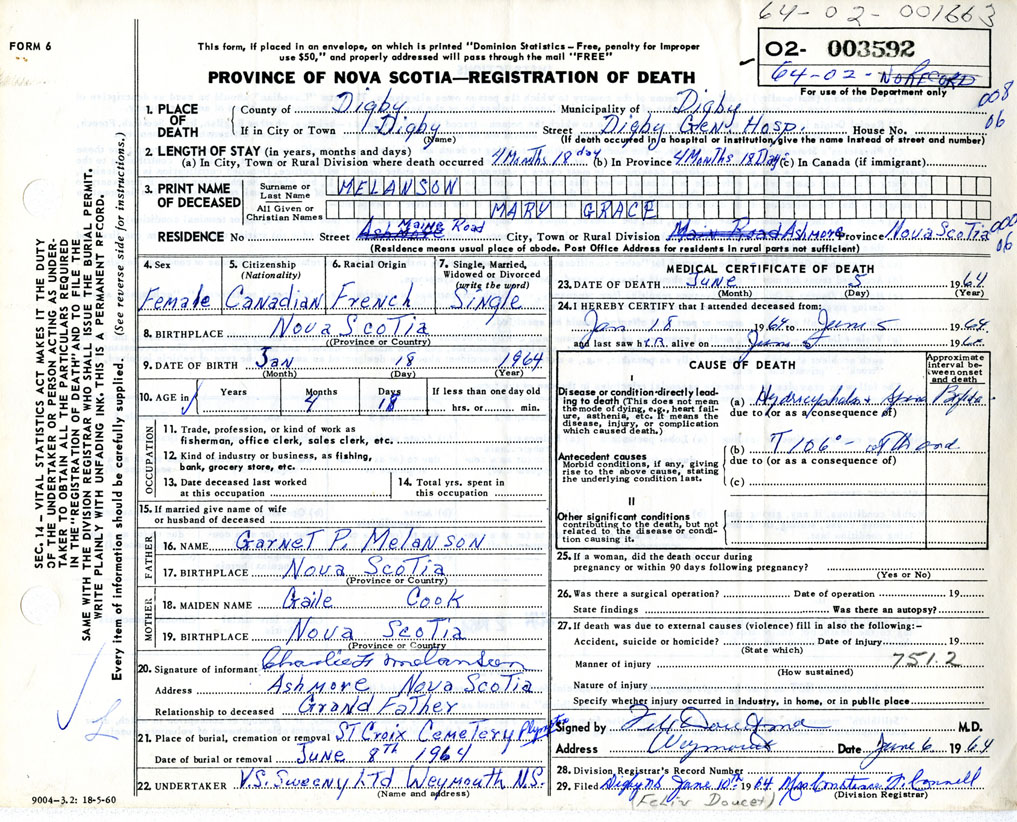 64-02-001663
FORM 6
This form, if placed in an envelope, on which is printed "Dominion Statistics – Free, penalty for improper
use $50," and properly addressed will pass through the mail "FREE"
O2- 003592
64-02-
For use of the Department only
008
06
PROVINCE OF NOVA SCOTIA—REGISTRATION OF DEATH
1. PLACE OF DEATH
County of Digby Municipality of Digby
If in City or Town Digby Street Digby Gen. Hosp. House No.
(Name) (If death occurred in a hospital or institution, give the name instead of street and number)
2. LENGTH OF STAY (in years, months and days)
(a) In City, Town or Rural Division where death occurred 4 Months 18 day (b) In Province 4 Months 18 Days (c) In Canada (if immigrant)
3. PRINT NAME OF DECEASED
Surname or Last Name MELANSON
All Given or Christian Names MARY GRACE
RESIDENCE No Street Road City, Town or Rural Division Ashmore Province Nova Scotia
06
(Residence means usual place of abode. Post Office Address for residents in rural parts not sufficient)
4. Sex Female
5. Citizenship (Nationality) Canadian
6. Racial Origin French
7. Single, Married, Widowed or Divorced (write the word) Single
8. BIRTHPLACE Nova Scotia
(Province or Country)
9. DATE OF BIRTH Jan 18 1964
(Month) (Day) (Year)
10. AGE in Years Months 4 Days 18 If less than one day old hrs. or min.
OCCUPATION
11. Trade, profession, or kind of work as
fisherman, office clerk, sales clerk, etc.
12. Kind of industry or business, as fishing,
bank, grocery store, etc.
13. Date deceased last worked at this occupation
14. Total yrs. spent in this occupation
15. If married give name of wife
or husband of deceased
FATHER
16. NAME Garnet P. Melanson
17. BIRTHPLACE Nova Scotia
(Province or Country)
MOTHER
18. MAIDEN NAME Gaile Cook
19. BIRTHPLACE Nova Scotia
(Province or Country)
20. Signature of informant Charlie F Melanson
Address Ashmore Nova Scotia
Relationship to deceased Grand Father
21. Place of burial, cremation or removal St Croix Cemetery Plympton
Date of burial or removal June 8th 1964
22. UNDERTAKER V.S. Sweeny Ltd Weymouth N.S.
(Name and address)
MEDICAL CERTIFICATE OF DEATH
23. DATE OF DEATH June 5 1964
(Month) (Day) (Year)
24. I HEREBY CERTIFY that I attended deceased from:
Jan 18 1964 to June 5 1964
and last saw her alive on June 5 196
CAUSE OF DEATH
Approximate interval between onset and death
I
Disease or condition directly leading to death (This does not mean the mode of dying, e.g., heart failure, asthenia, etc. It means the disease, injury, or complication which caused death.)
(a) Hydrocephalus Spina Bifida
due to (or as a consequence of)
(b) T 106° - at th end
Antecedent causes
Morbid conditions, if any, giving rise to the above cause, stating the underlying condition last.
due to (or as a consequence of)
(c)
II
Other significant conditions
contributing to the death, but not related to the disease or condition causing it.
25. If a woman, did the death occur during
pregnancy or within 90 days following pregnancy?
(Yes or No)
26. Was there a surgical operation? Date of operation 19
State findings Was there an autopsy?
27. If death was due to external causes (violence) fill in also the following:–
Accident, suicide or homicide? Date of injury 19
(State which)
Manner of injury 751.2
(How sustained)
Nature of injury
Specify whether injury occurred in industry, in home, or in public place
Signed by M.D.
Address Weymouth Date June 6 1964
28. Division Registrar's Record Number
29. Filed Digby NS June 10th 1964 Mrs Constance F. Connell
(Felix Doucet) (Division Registrar)
SEC. 14 – VITAL STATISTICS ACT MAKES IT THE DUTY
OF THE UNDERTAKER OR PERSON ACTING AS UNDER-
TAKER TO OBTAIN ALL THE PARTICULARS REQUIRED
IN THE "REGISTRATION OF DEATH" AND TO FILE THE
SAME WITH THE DIVISION REGISTRAR WHO SHALL ISSUE THE BURIAL PERMIT.
WRITE PLAINLY WITH UNFADING INK. THIS IS A PERMANENT RECORD.
Every item of information should be carefully supplied. (See reverse side for instructions.)
9004-3.2: 18-5-60